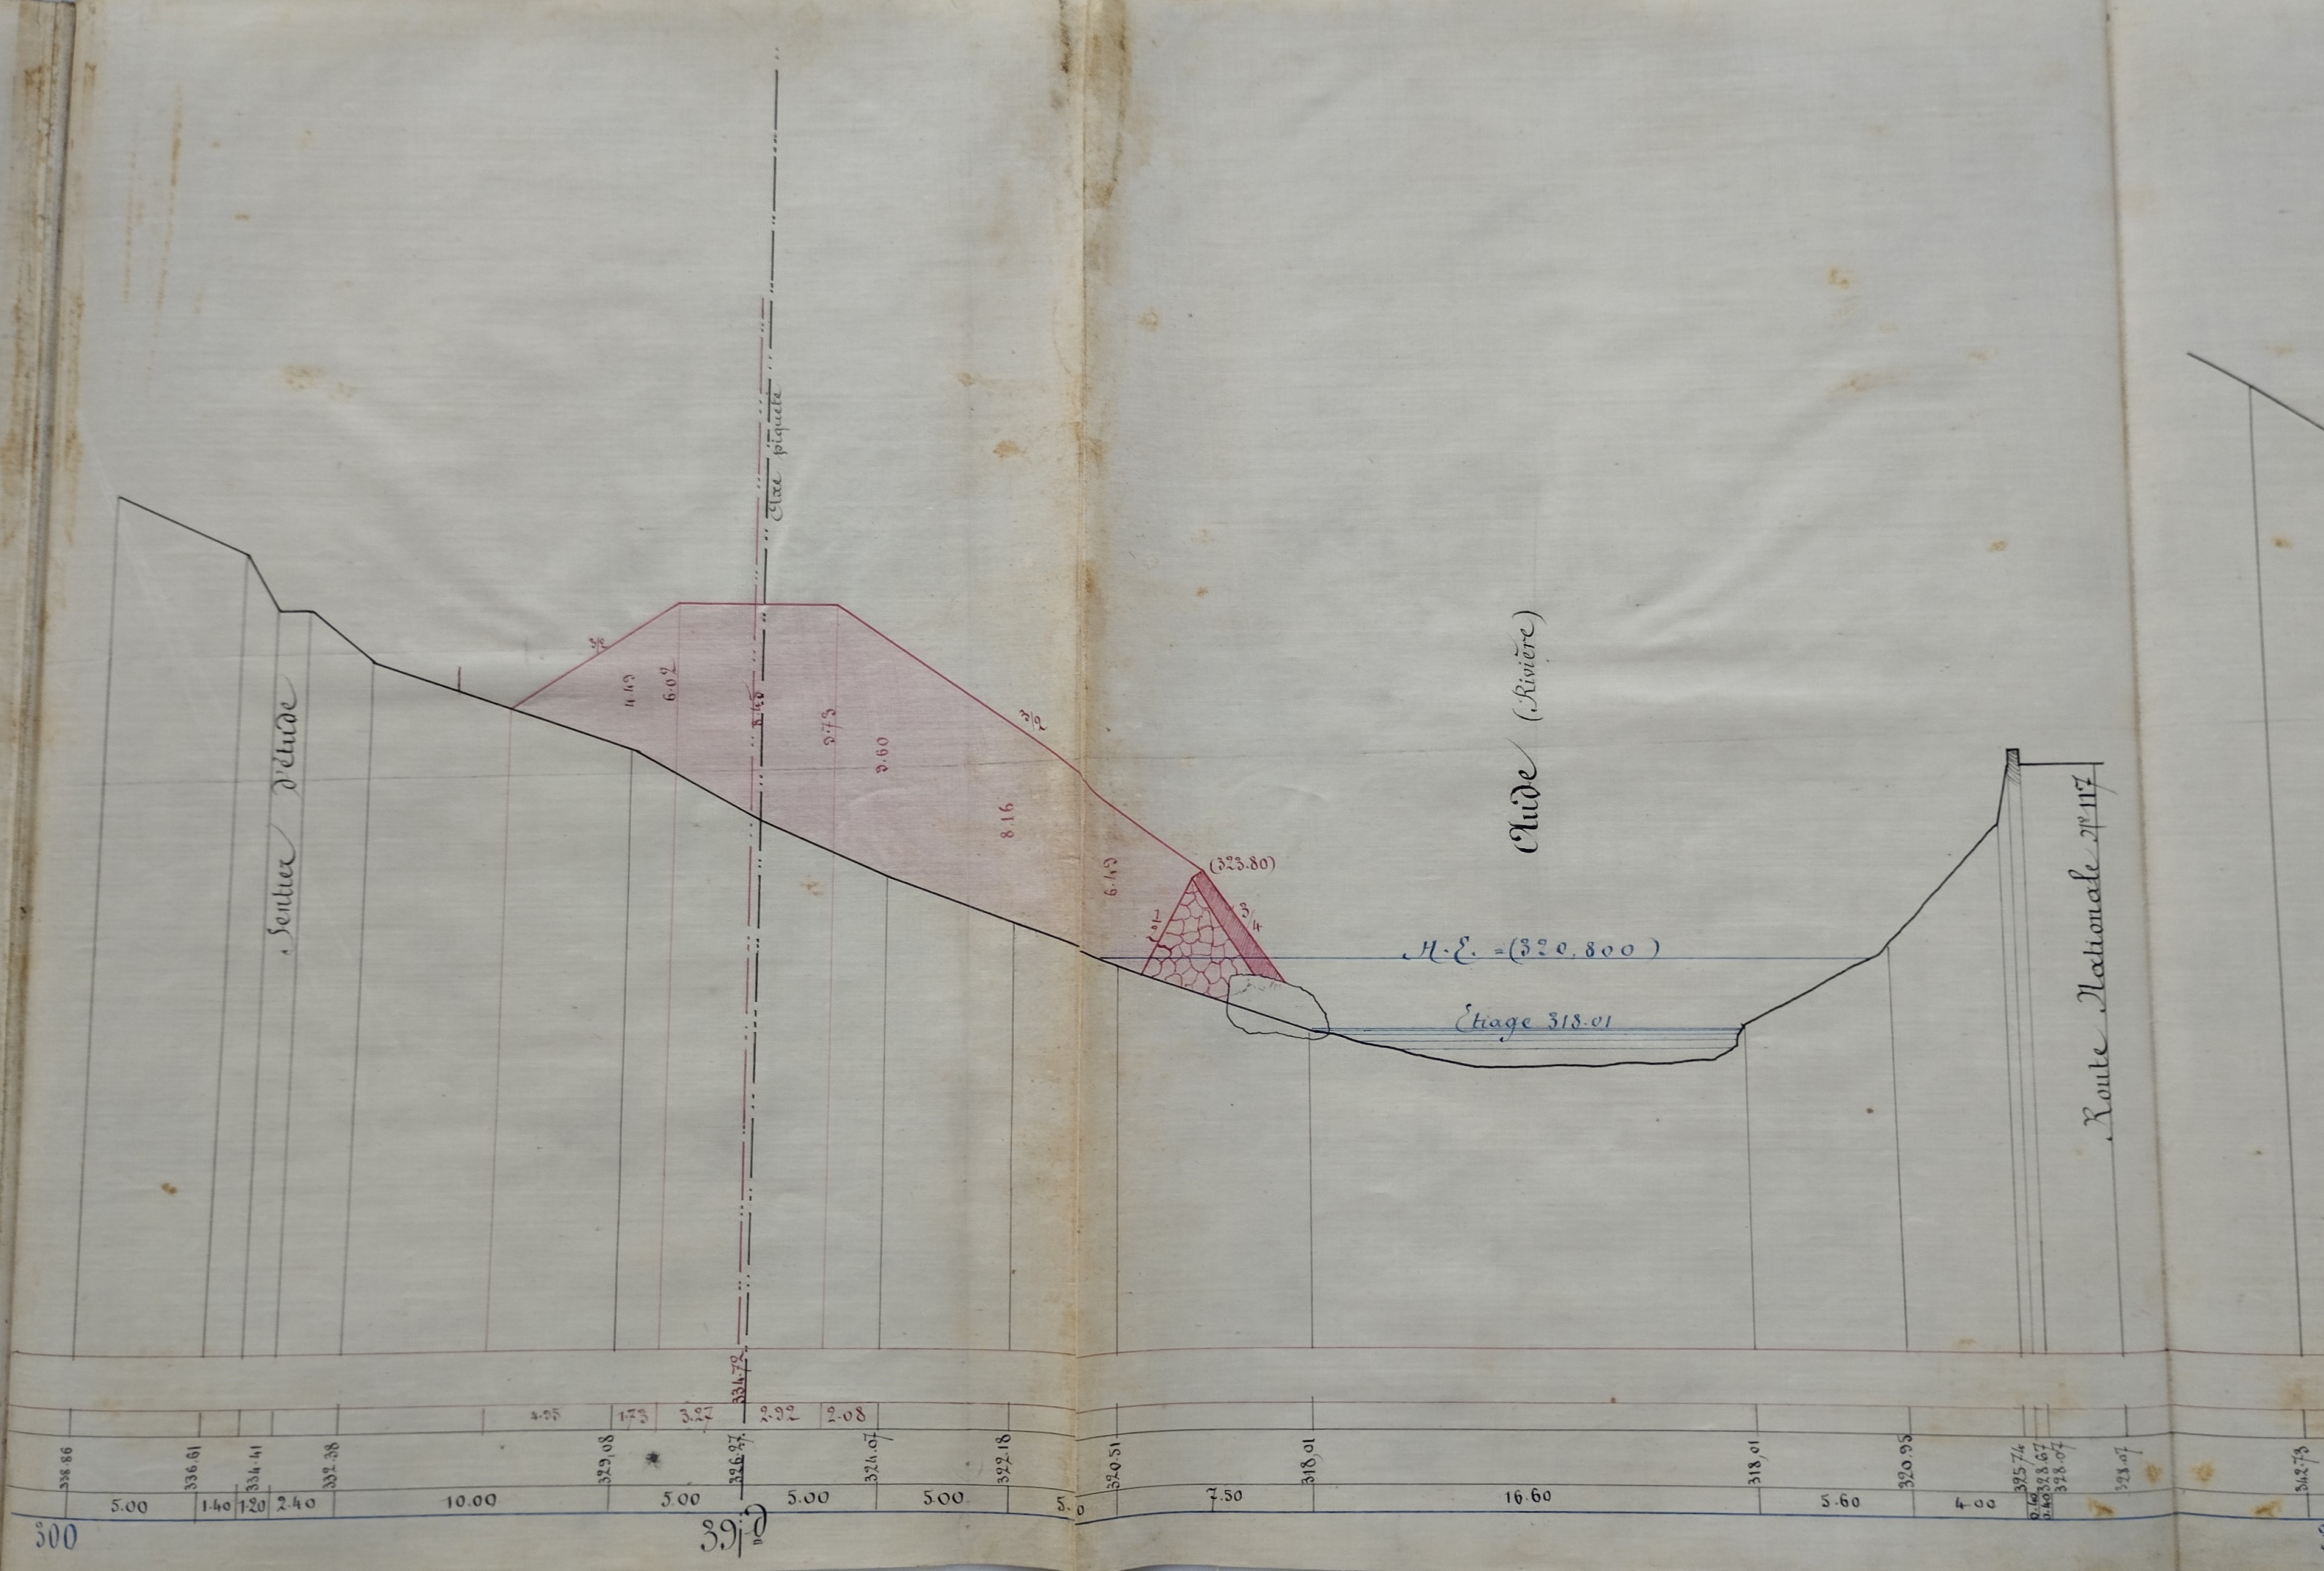 Axe piqueté
3/2
4.49
6.02
8.45
9.73
9.60
8.16
6.49
3/2
(323.80)
3/4
Sentier d'étude
Aude (Rivière)
H.E. =(320,800)
Etiage 318.01
Route Nationale Nº 117
334.72
4.95 1.73 3.27 2.92 2.08
338.86 336.61 334.41 332.38 329,08 326.27 324.07 322.18 320.51 318,01 318,01 320.95 325.74 328.67 328.07 328.07 342.73
5.00 1.40 1.20 2.40 10.00 5.00 5.00 5.00 5. 0 7.50 16.60 5.60 4.00 0.40 0.40
300
39